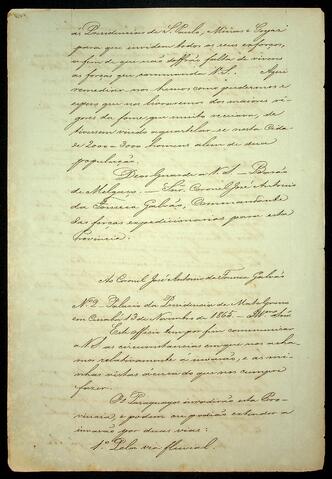 ás Presidencias de S. Paulo, Minas e Goyaz
para que invidem todos os seus esforços,
a fim de que não soffrão falta de viveres
as forças que commanda V. S. Aqui
remediar nos hemos como podermos e
espero que nos livraremos dos maiores ri-
gores da fome, que muito receiava, se
tivessem vindo aquartelar-se nesta Cida
de 2000 a 3000 homens alem de sua
população.
Deos Guarde a V. S. — Barão
de Melgaço. — Snr. Coronel José Antonio
da Fonseca Galvão, Commandante
das forças expedicionarias para esta
Provincia.
Ao Coronel José Antonio da Fonseca Galvão
N.º 2. Palacio da Presidencia de Mato Grosso
em Cuiabá 13 de Novembro de 1865. — Illmo Snr.
Este officio tem por fim communicar
a V. S. as circunstancias em que nos acha-
mos relativamente á invasão, e as mi-
nhas vistas ácerca do que nos cumpre
fazer.
Os Paraguayos invadirão esta Pro-
vincia, e podem ou podião extender a
invasão por duas vias:
1.º Pela via fluvial.